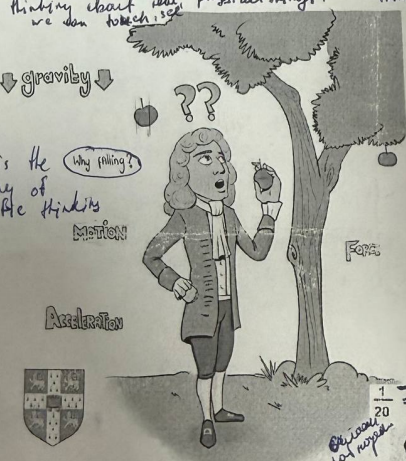 thinking about
we can touch, see
gravity
??
is the
Why falling?
of
thinking
MOTION
FORCE
ACCELERATION
1
20